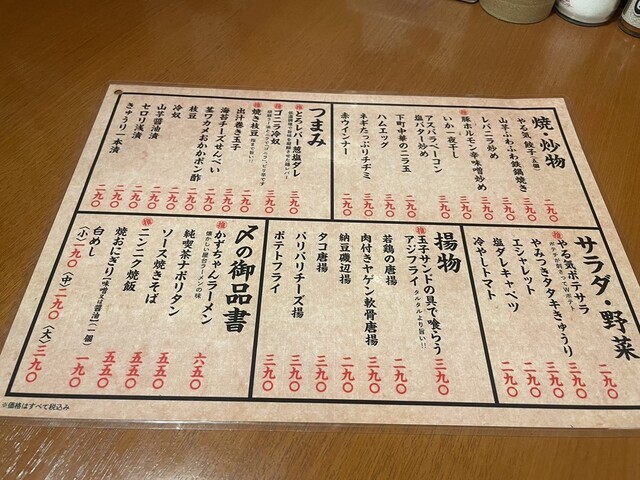 焼・炒物
やる気餃子(五個) 二九〇
山芋ふわふわ鉄鍋焼き 三九〇
レバニラ炒め 三九〇
豚ホルモン辛味噌炒め 三九〇
いか一夜干し 三九〇
アスパラベーコン
塩バター炒め 三九〇
下町中華のニラ玉 三九〇
ハムエッグ 二九〇
ネギたっぷりチヂミ 三九〇
赤ウインナー 三九〇
つまみ
とろレバー葱塩ダレ 三九〇
ゴニラ冷奴 三九〇
焼き枝豆 三九〇
出汁巻き玉子 三九〇
海苔チーズせんべい 三九〇
茎ワカメおかかポン酢 二九〇
枝豆 二九〇
冷奴 二九〇
山芋醤油漬 二九〇
セロリ浅漬 二九〇
きゅうり一本漬 二九〇
サラダ・野菜
やる気ポテサラ 三九〇
ポテチが刺さってWポテト
やみつきタタキきゅうり 三九〇
エシャレット 二九〇
塩ダレキャベツ 二九〇
冷やしトマト 二九〇
揚物
玉子サンドの具で喰らう
アジフライ 三九〇
タルタルより旨い!!
若鶏の唐揚 二九〇
肉付きヤゲン軟骨唐揚 三九〇
納豆磯辺揚 二九〇
タコ唐揚 三九〇
パリパリチーズ揚 三九〇
ポテトフライ 三九〇
〆の御品書
かずちゃんラーメン 六五〇
懐かしい屋台ラーメンの味
純喫茶ナポリタン 五五〇
ソース焼きそば 五五〇
ニンニク焼飯 五五〇
焼おにぎり(味噌又は醤油)(一個) 一九〇
白めし
(小)一九〇 (中)二九〇 (大)三九〇
※価格はすべて税込み